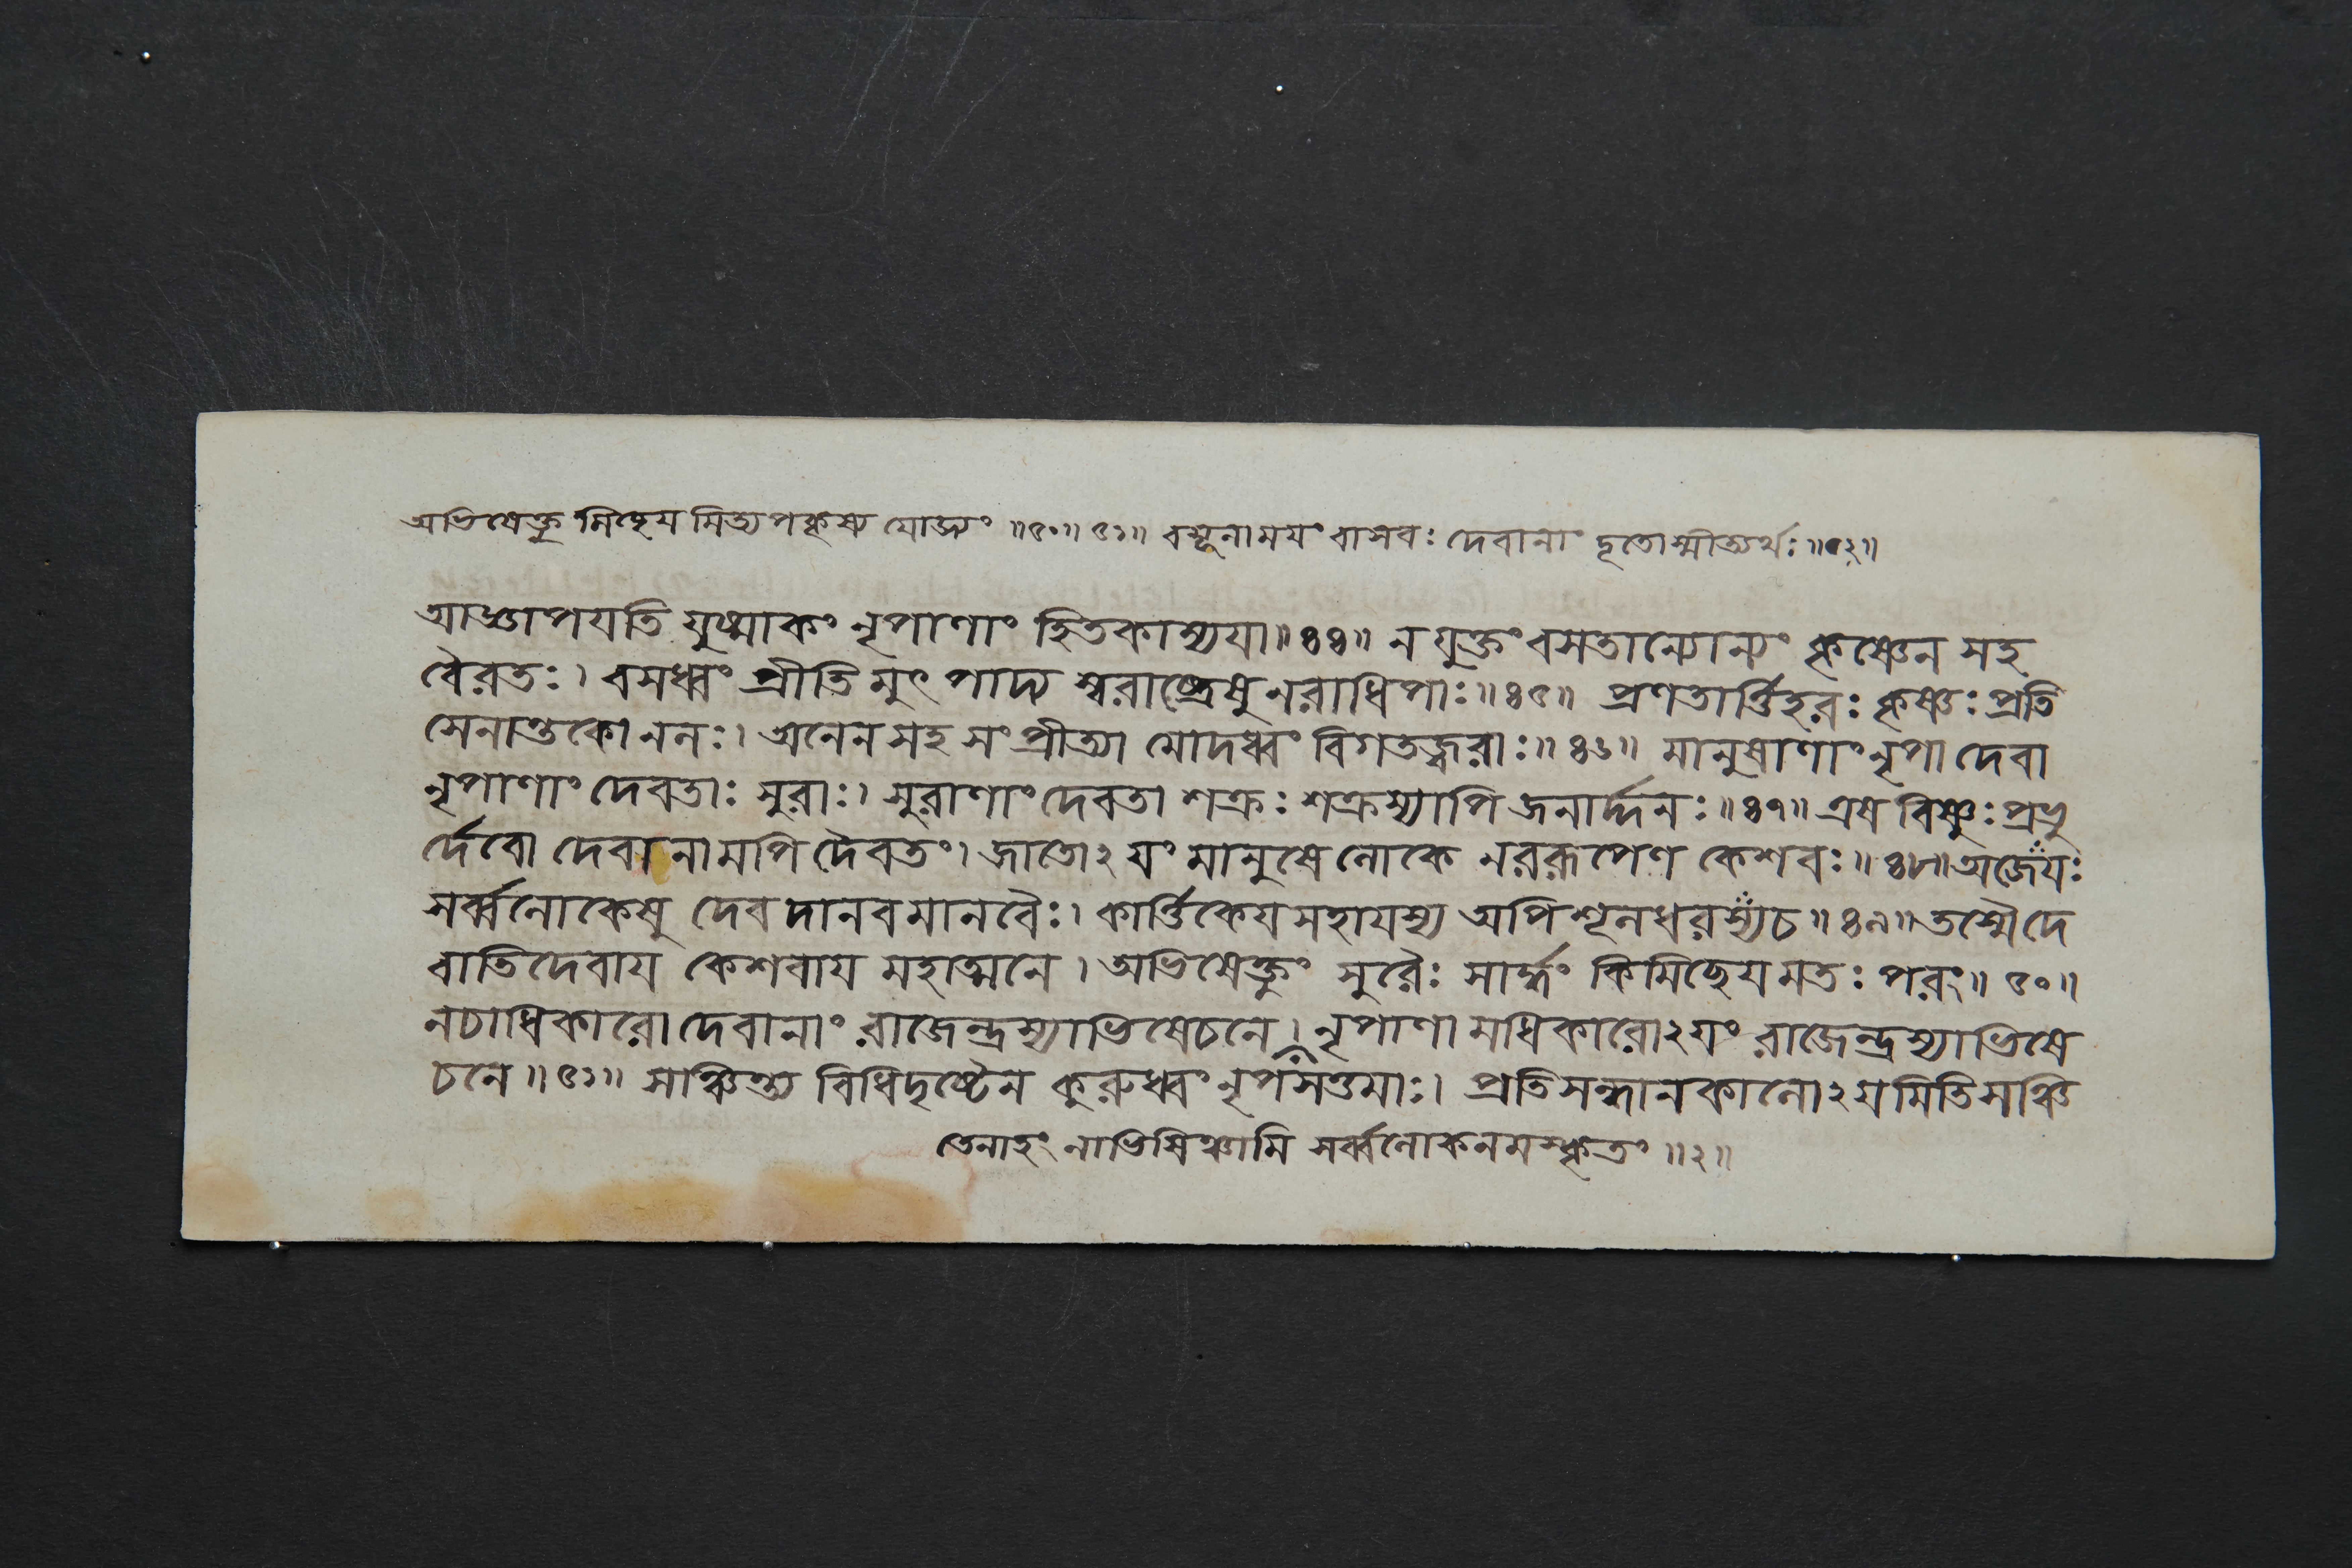 অভিষেক্তু মিচ্ছেয মিত্যপকৃষ্য যোজ্যং ॥৫০॥ ৫১॥ বসূনাময়ং বাসবঃ দেবানাং দূতোস্মীত্যর্থঃ ॥৫২॥
আজ্ঞাপযতি যুষ্মাকং নৃপাণাং হিতকাম্যযা॥৪৪॥ ন যুক্তং বসতান্যোন্যং কৃষ্ণেন সহ
বৈরতঃ। বসধ্বং প্রীতি মুৎপাদ্য স্বরাষ্ট্রেষু নরাধিপাঃ॥৪৫॥ প্রণতার্ত্তিহরঃ কৃষ্ণঃ প্রতি
সেনান্তকো নলঃ। অনেন সহ সংপ্রীত্যা মোদধ্বং বিগতজ্বরাঃ॥৪৬॥ মানুষাণাং নৃপা দেবা
নৃপাণাং দেবতাঃ সুরাঃ। সুরাণাং দেবতা শক্রঃ শক্রস্যাপি জনার্দ্দনঃ॥৪৭॥ এষ বিষ্ণুঃ প্রভু
র্দেবো দেবানামপি দৈবতং। জাতোঽযং মানুষে লোকে নররূপেণ কেশবঃ॥৪৮॥ অজেযঃ
সর্ব্বলোকেষু দেবদানবমানবৈঃ। কার্ত্তিকেযসহাযস্য অপি শূলধরস্য চ॥৪৯॥ তস্মৈ দে
বাতিদেবায কেশবায মহাত্মনে। অভিষেক্তুং সুরৈঃ সার্দ্ধং কিমিচ্ছেযমতঃ পরং॥৫০॥
নচাধিকারো দেবানাং রাজেন্দ্রস্যাভিষেচনে। নৃপাণামধিকারোঽযং রাজেন্দ্রস্যাভিষে
চনে॥৫১॥ সাঞ্চিত্য বিধিদৃষ্টেন কুরুধ্বং নৃপসত্তমাঃ। প্রতিসন্ধানকালোঽযমিতি সঞ্চি
তেনাহং নাভিষিঞ্চামি সর্ব্বলোকনমস্কৃতং ॥২॥